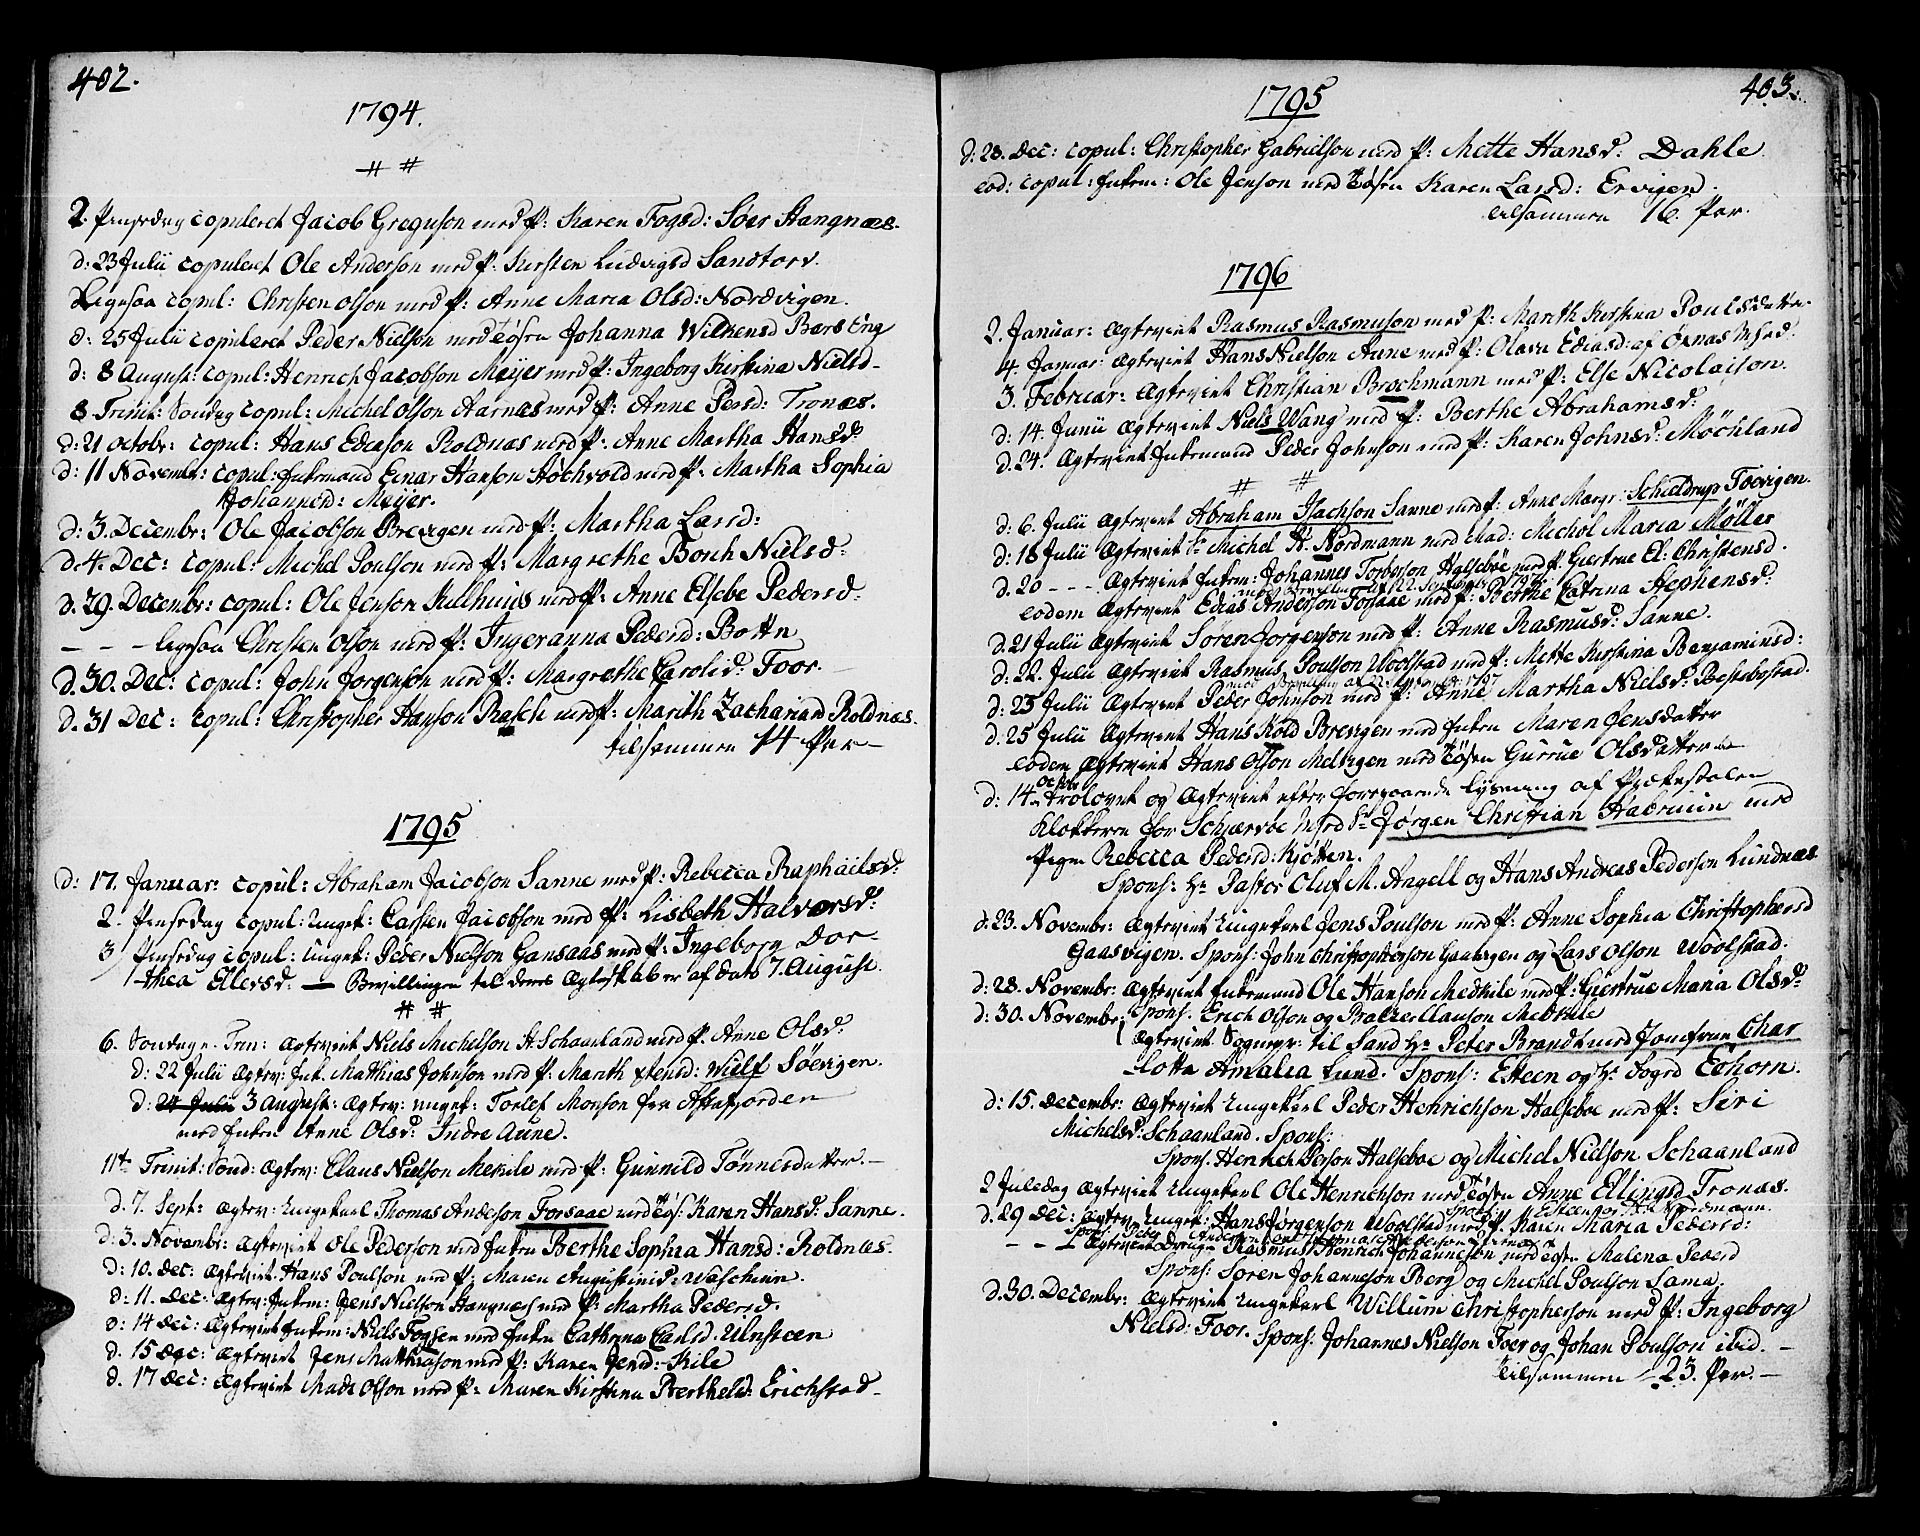 402.
1794.
# #
2. Pinsedag copuleret Jacob Greguson med P: Karen Fogsd: Söer Stangnæs.
d: 23 Julii copuleret Ole Anderson med P: Kirsten Ludvigsd Sandtorv.
Ligesaa copul: Christen Olson med P: Anne Maria Olsd: Nordvigen.
d: 25 Julii copuleret Peder Nielson med Tøsen Johanna Wilkensd Bærs Eng
d: 8 August: copul: Henrich Jacobson Meijer med P: Ingeborg Kirstina Nielsd-
8 Trinit: Søndag copul: Michel Olson Aarnæs med P: Anne Persd: Tronæs.
d: 21 Octobr: copul: Hans Edisson Roldnæs med P: Anne Martha Hansdr
d: 11 November: copul: Enkemand Einar Hanson Höchvold med P: Martha Sophia
Johannesd: Meijer.
d: 3. Decembr: Ole Jacobson Brevigen med P: Martha Larsd:
d. 4. Dec: copul: Michel Poulson med P: Margrethe Bonh Nielsd:
d. 29. Decembr: copul: Ole Jenson Kulhuus med P: Anne Elsebe Pedersd:
- - - ligesaa Christen Olson med P: Ingeranna Pedersd: Bottn
d. 30. Dec: copul: John Jörgenson med P: Margrethe Carolid: Foor.
d. 31 Dec: copul: Christopher Hanson Rasch med P: Marith Zachariasd Roldnæs.
tilsammen 14 Par-
1795
d: 17. Januar: copul: Abraham Jacobson Sanne med P: Rebecca Raphaelsd:
2. Pinsedag copul: Ungk: Carsten Jacobson med P: Lisbeth Halvorsdr
3 Pinsedag copul: Ungk: Peder Nielson Gansaas med P: Ingeborg Dor-
thea Ellersd: — Bevillingen til deres Ægteskab er af dato 7. August.
# #
6. Søndag e. Trin: Ægteviet Niels Michelson St. Schaanland med P. Anne Olsdr
d: 22 Julii Ægtev: Enk. Matthias Johnson med P: Marith Stensd: Wielf Söevigen.
d: 24 Julii 3 August: Ægtev: Ungk: Torlef Monson fra Astafjorden
med Enken Anne Olsd: Indre Aune.
11te Trinit: Sönd: Ægtev: Claus Nielson Mekile med P: Gunnild Tönnesdatter.-
d. 7. Sept: Ægtev: Ungekarl Thomas Anderson Forsaae med Tös: Karen Hansd: Sanne.
d: 3. Novembr: Ægteviet Ole Pederson med Enken Berthe Sophia Hansd: Roldnæs.
d: 10. Dec: Ægteviet Hans Poulson med P: Maren Augustinid: Waschein.
d: 11. Dec: Ægtev: Enkem: Jens Nielson Stangnæs med P: Martha Pedersd.
d: 14 Dec: Ægteviet Enkem: Niels Fogsen med Enken Cathrina Carlsd. Ulnsteen
d. 15 Dec: Ægteviet Jens Matthiason med P: Karen Jensd:- Kile
d. 17 Dec: Ægteviet Mads Olson med P: Maren Kirstina Berthelsd: Erichstad-
403.
1795
d: 28. Dec: copul: Christopher Gabrielson med P: Mette Hansdr: Dahle.
eod: copul: Enkem: Ole Jenson med Tøsen Karen Larsd: Ervigen.
tilsammen 16. Par.
1796
2. Januar: Ægteviet Rasmus Rasmuson med P: Marith Kirstina Poulsdatter.
4. Januar: Ægteviet Hans Nielson Aune med P: Olava Ediasd: af Örnæs
3. Februar: Ægteviet Christian Brochmann med P: Else Nicolaison.
d: 14. Junii Ægteviet Niels Wang med P: Berthe Abrahamsd:
d. 24. Ægteviet Enkemand Peder Johnson med P: Karen Johnsd: Möchland
# #
d: 6. Julii Ægteviet Abraham Isachson Sanne med P: Anne Margr: Schieldrup Toevigen.
d: 18 Julii Ægteviet Sr Michel H. Nordmann med Mad: Mechol Maria Möller
d. 20 - - - Ægteviet Enkem: Johannes Torberson Halseböe med P: Giertrue El: Christensd.
eodem Ægteviet Edias Anderson Forsaae med P: Berthe Catrina Stephensd:
d. 21 Julii Ægteviet Sören Jörgenson med P: Anne Rasmusdr: Sanne.
d: 22. Julii Ægteviet Rasmus Poulson Woolstad med P: Mette Kirstina Benjaminsd:
d: 23 Julii Ægteviet Peder Johnson med P: Anne Martha Nielsdr: Bestebostad.
d: 25 Julii Ægteviet Hans Kold Brevigen med Enken Maren Jensdatter
eodem Ægteviet Hans Olson Melvigen med Tøsen Gurrue Olsdatter
d: 14. Octbr Trolovet og Ægteviet efter foregaaende Lysning af Prækestolen
Klokkeren for Schjærvöe Sr Jörgen Christian Hadrum med
Pigen Rebecca Pedersd: Kjötten.
Spons: Hr Pastor Oluf M. Angell og Hans Andreas Pederson Lundnæs
d. 23. Novembr: Ægteviet Ungekarl Jens Poulson med P: Anne Sophia Christophersd
Gaasvigen. Spons: John Christopherson Gaasvigen og Lars Olson Woolstad.
d: 28. Novembr: Ægteviet Enkemand Ole Hanson Medkile med P: Giertrue Maria Olsdr
Spons. Erich Olson og Balzer Clauson Medkile
d: 30. Novembr: Ægteviet Sognepr: til Sand Hr Peter Brandt med Jomfrue Char
lotta Amalia Lund. Spons: Esteen og Hr Foged Eehorn.
d: 15. Decembr: Ægteviet Ungekarl Peder Henrichson Halseböe med P: Siri
Michelsd: Schaanland. Spons:
Spons. Henrich Person Halseböe og Michel Nielson Schaanland
2 Juledag Ægteviet Ungekarl Ole Henrichson med Tøsen Anne Ellingsd Tronæs.
d. 29 Dec: Ægtev. Ungk: Hans Jörgenson Woolstad med P: Karen Maria Pedersd:
- - - Ægteviet Rasmus Henrich Johanneson med Malena Pedersd
Spons: Sören Johanneson Berg og Michel Poulson Sama.
d. 30. Decembr: Ægteviet Ungekarl Willum Christopherson med P: Ingeborg
Nielsd: Foor. Spons: Johannes Nielson Foer og Johan Poulson ibid. -
tilsammen 23. Par.-